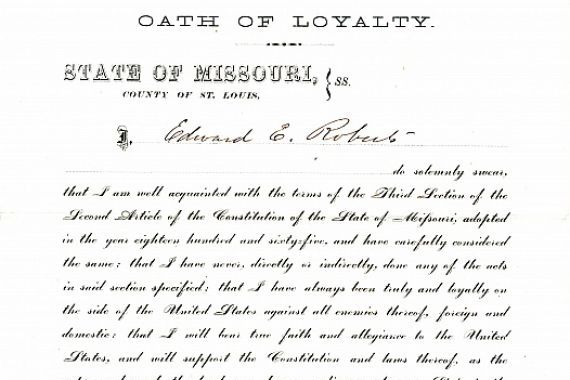 OATH OF LOYALTY.
STATE OF MISSOURI,
COUNTY OF ST. LOUIS,
} SS.
I, Edward E. Roberts
do solemnly swear,
that I am well acquainted with the terms of the Third Section of the
Second Article of the Constitution of the State of Mifsouri, adopted
in the year eighteen hundred and sixty-five, and have carefully considered
the same; that I have never, directly or indirectly, done any of the acts
in said section specified; that I have always been truly and loyally on
the side of the United States against all enemies thereof, foreign and
domestic; that I will bear true faith and allegiance to the United
States, and will support the Constitution and laws thereof, as the